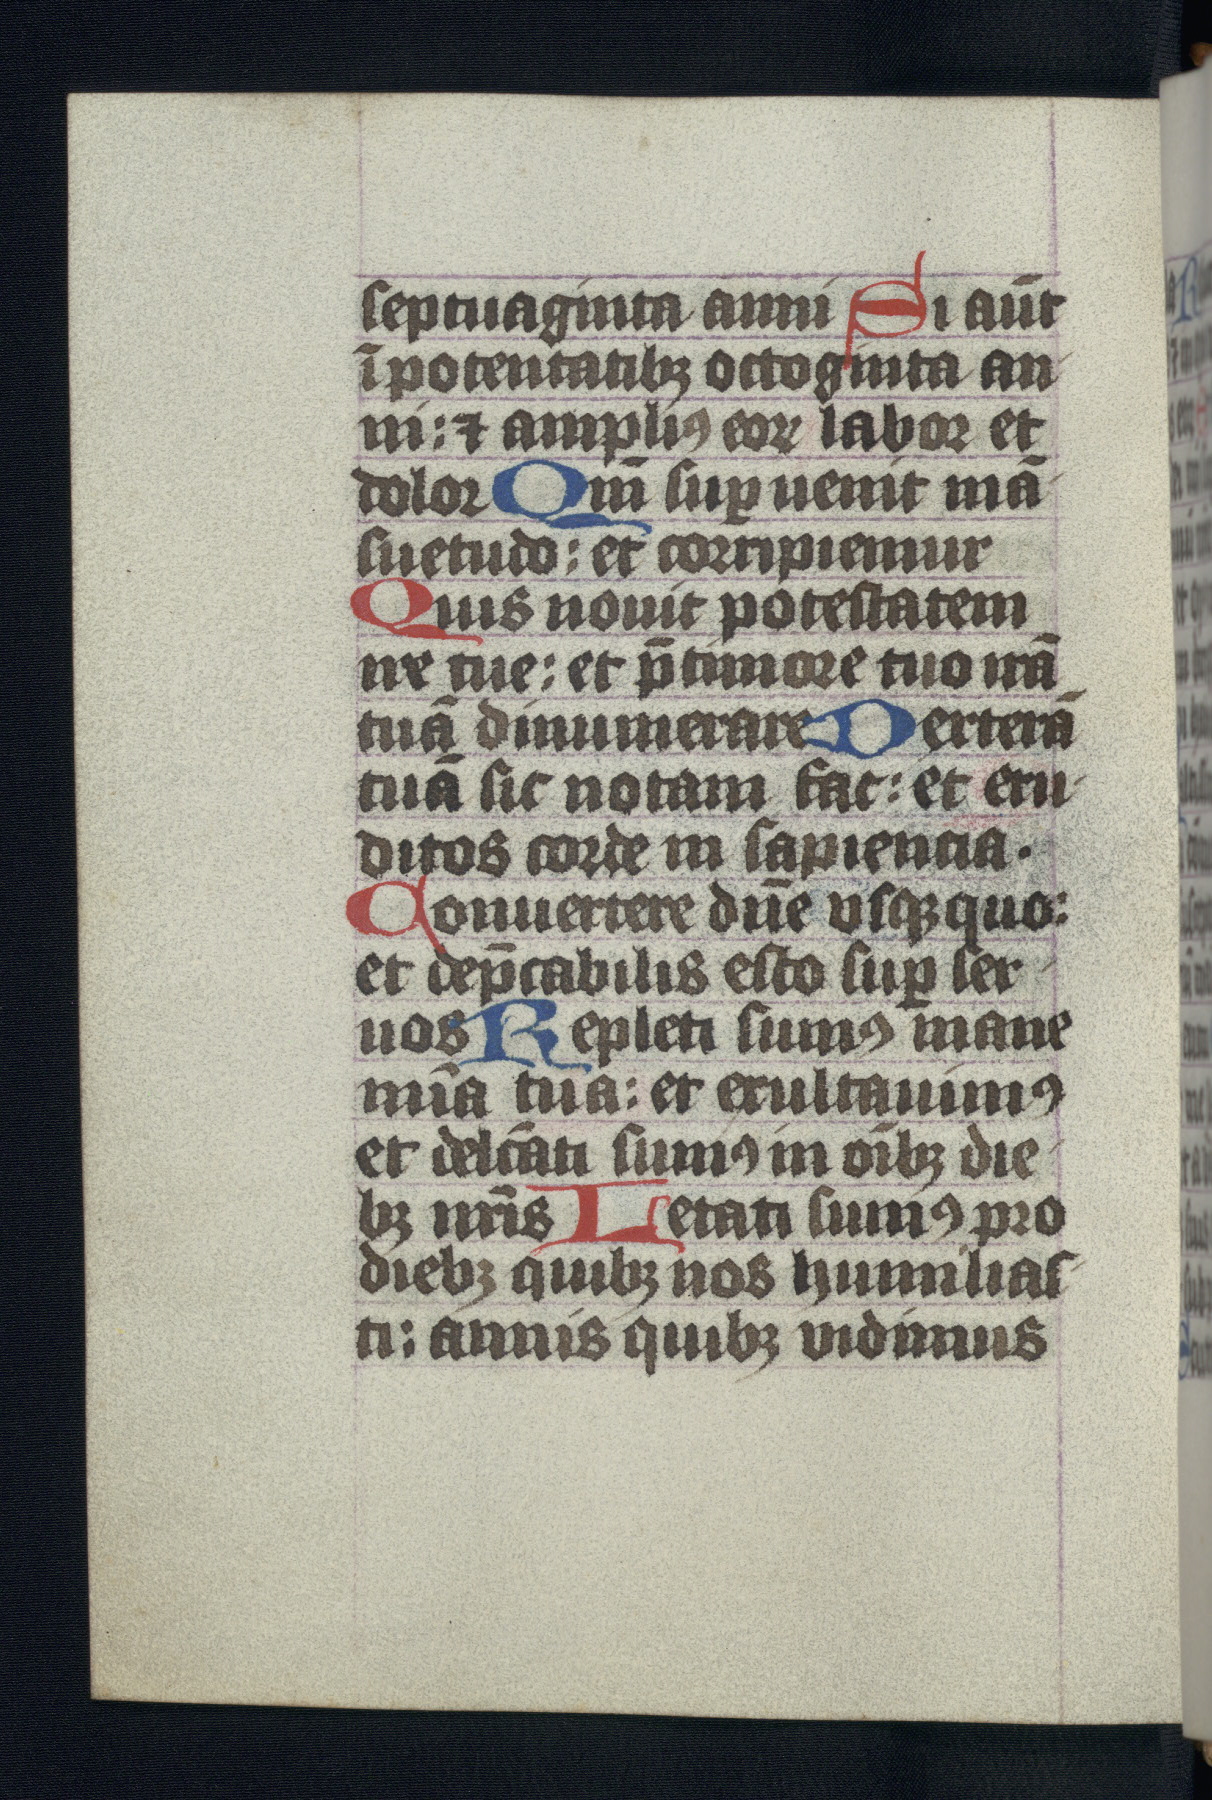 septuaginta anni Si aut̄
ī potentatibꝫ octoginta an
ni: ⁊ ampliꝰ eoꝝ labor et
dolor Qm̄ suꝑ uenit mā
suetudo: et corripiemur
Quis nouit potestatem
ire tue: et p̄ timore tuo irā
tuā dinumerare Dexterā
tuā sic notam fac: et eru
ditos corde in sapientia.
Conuertere dn̄e vsqꝫ quo:
et dep̄cabilis esto suꝑ ser
uos Repleti sumꝰ mane
mīa tua: et exultauimꝰ
et delc̄ati sumꝰ in oībꝫ die
bꝫ nr̄is Letati sumꝰ pro
diebꝫ quibꝫ nos humilias
ti: annis quibꝫ vidimus